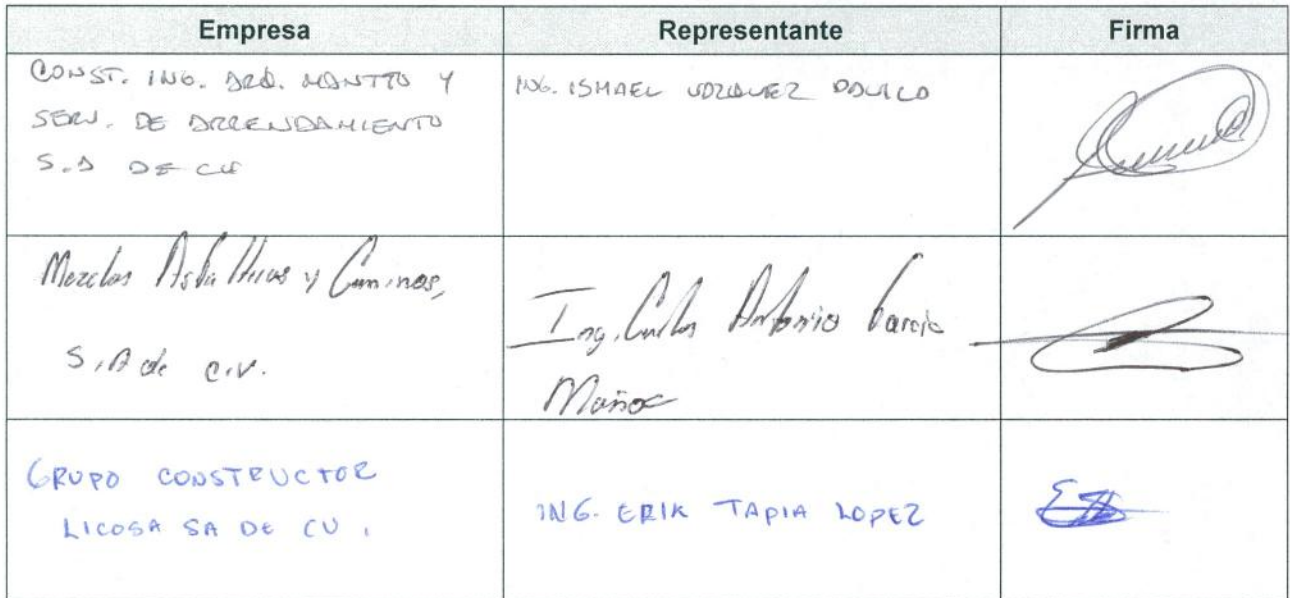 Empresa Representante Firma
CONST. ING. ARQ. MANTTO Y
SERV. DE ARRENDAMIENTO
S.A DE CV
ING. ISMAEL VAZQUEZ
Mezclas Asfalticas y Caminos,
S.A de C.V.
Ing. Carlos Antonio Garcia
Muñoz
GRUPO CONSTRUCTOR
LICOSA SA DE CV.
ING. ERIK TAPIA LOPEZ